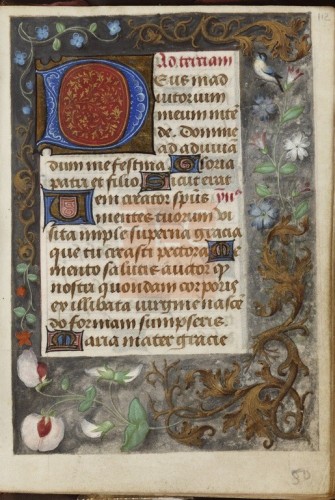 Ad terciam
Deus in ad
iutorium
meum inte
de. Domine
ad adiuua
dum me festina Gloria
patri et filio Sicut erat
Veni creator sp̄us ymꝰ
mentes tuorum vi
sita imple superna gracia
que tu creasti pectora Me
mento salutis auctor qꝫ
nostri quondam corporis
ex illibata virgine nasce
do formam sumpseris
Maria mater gracie
80